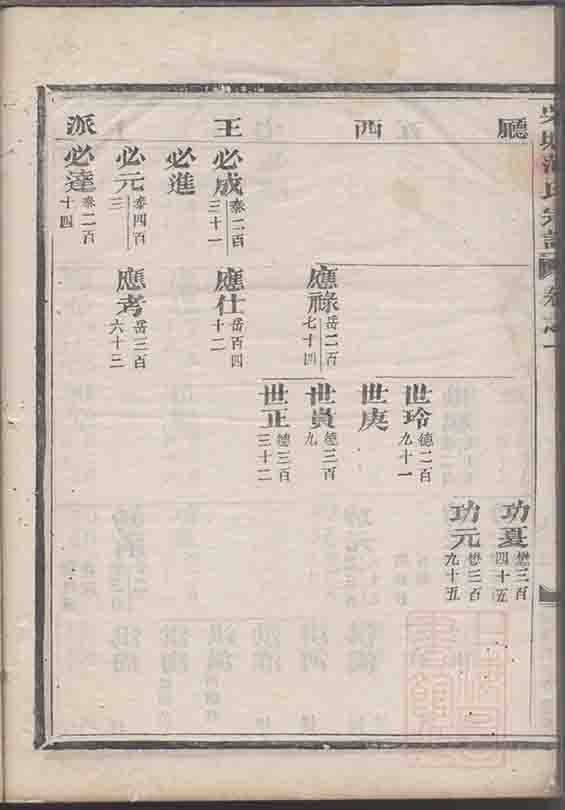 廳西王派
功夏 懋三百四十五
功元 懋三百九十五
世玲 德二百九十一
世庚
世貴 德三百九
世正 德三百三十二
應祿 岳二百七十四
應仕 岳百四十二
應考 岳三百六十三
必成 泰二百三十一
必進
必元 泰四百三
必達 泰二百十四
氏宗譜